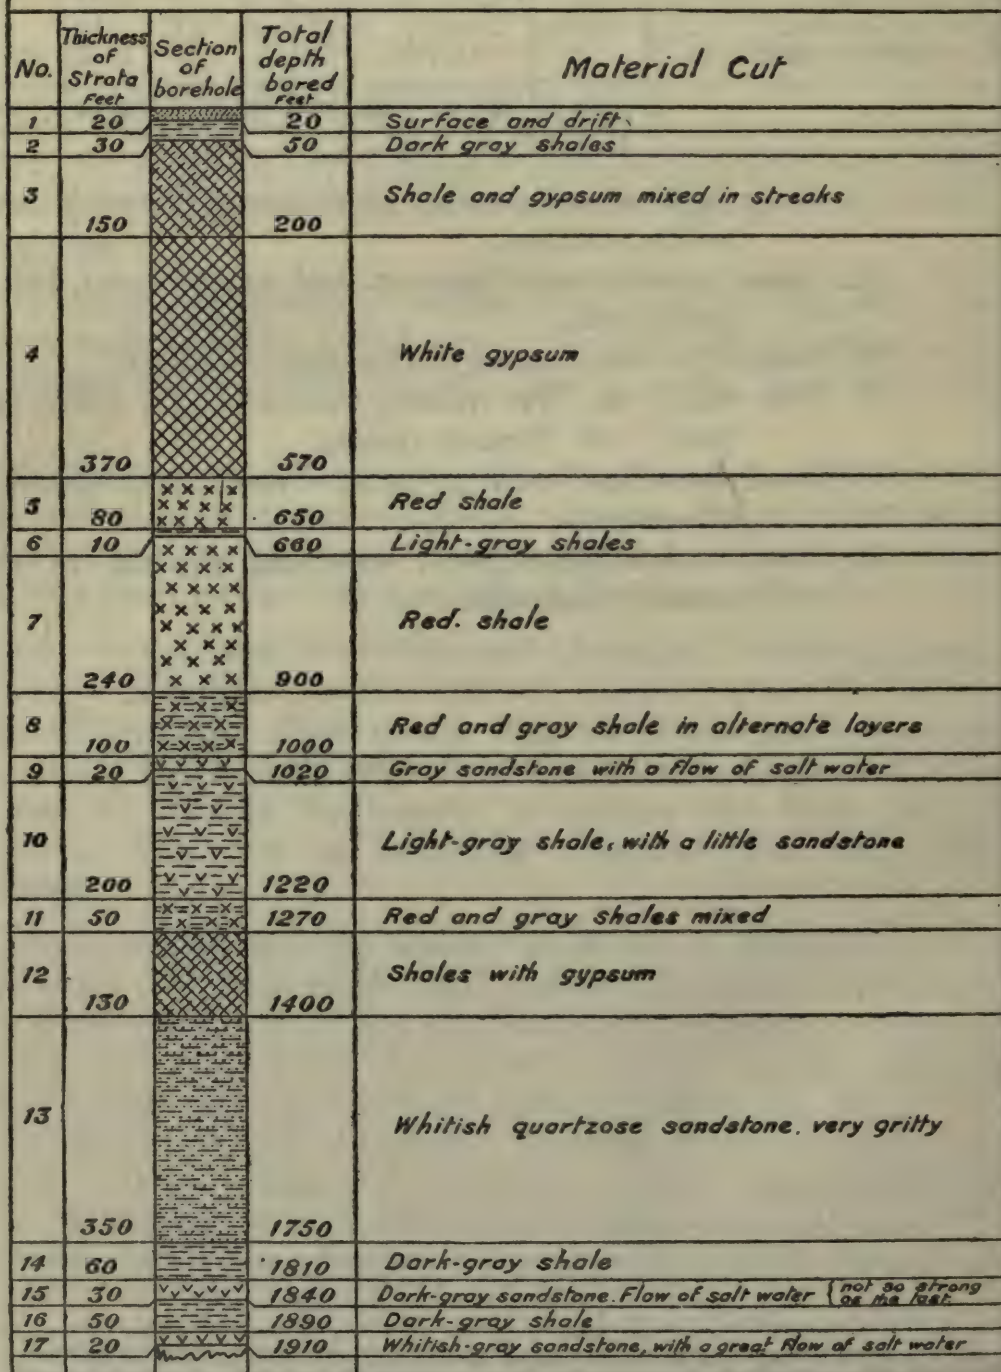 No. Thickness of Strata Feet Section of borehole Total depth bored Feet Material Cut
1 20 20 Surface and drift
2 30 50 Dark gray shales
3 150 200 Shale and gypsum mixed in streaks
4 370 570 White gypsum
5 80 650 Red shale
6 10 660 Light-gray shales
7 240 900 Red. shale
8 100 1000 Red and gray shale in alternate layers
9 20 1020 Gray sandstone with a flow of salt water
10 200 1220 Light-gray shale, with a little sandstone
11 50 1270 Red and gray shales mixed
12 130 1400 Shales with gypsum
13 350 1750 Whitish quartzose sandstone, very gritty
14 60 1810 Dark-gray shale
15 30 1840 Dark-gray sandstone. Flow of salt water {not so strong as the last.
16 50 1890 Dark-gray shale
17 20 1910 Whitish-gray sandstone, with a great flow of salt water